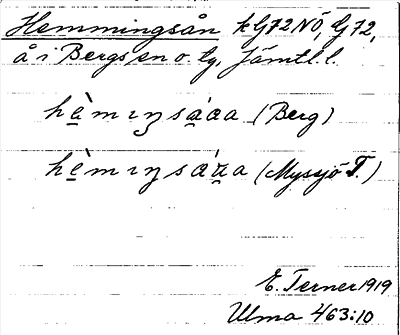 Hemmingsån kG72NÖ, G72,
å i Bergs sn o. tg, Jämtl. l.
hèmıŋsáaa (Berg)
hèmıŋsáⱥa (Myssjö T.)
E. Terner 1919
Ulma 463:10